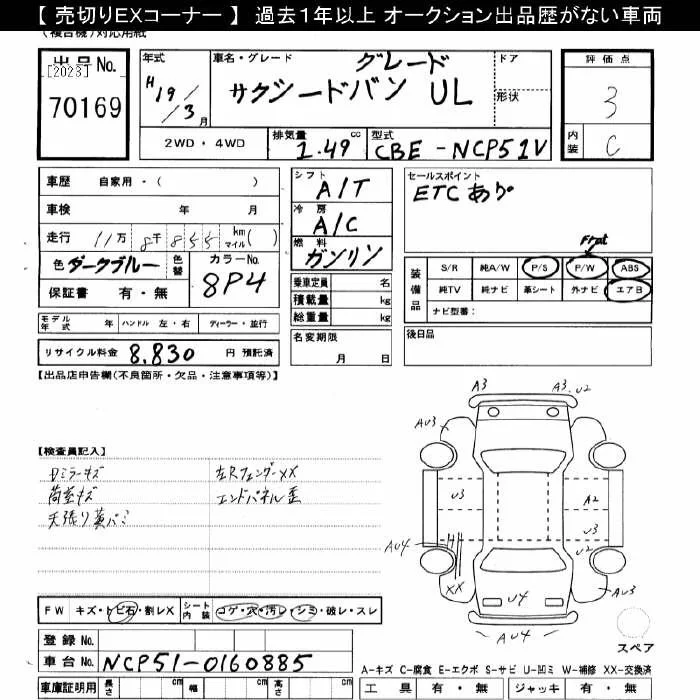 【 売切りEXコーナー 】 過去1年以上 オークション出品歴がない車両
(複合機)対応用紙
出品No.
[2023]
70169
年式
H19/3月
車名・グレード グレード
サクシードバン UL
ドア
形状
評価点
3
内装
C
2WD・4WD
排気量 1.49 cc
型式 CBE-NCP51V
車歴 自家用・( )
車検 年 月
走行 11万8千855 km マイル( )
色 ダークブルー 色替
カラーNo. 8P4
保証書 有・無
シフト A/T
冷房 A/C
燃料 ガソリン
乗車定員 名
積載量 kg
総重量 kg
セールスポイント
ETCあり
Front
装備品
S/R 純A/W P/S P/W ABS
純TV 純ナビ 革シート 外ナビ エアB
ナビ型番:
モデル年式 年 ハンドル 左・右 ディーラー・並行
名変期限 月 日
後日品
リサイクル料金 8,830 円 預託済
【出品店申告欄(不良箇所・欠品・注意事項等)】
【検査員記入】
Dミラーキズ
荷室キズ
天張り黄バミ
左RフェンダーXX
エンドパネル歪
A3
A3.U2
AU3
U3
A2
U3
U2
AU4
XX
U4
AU3
AU4
スペア
FW キズ・トビ石・割レX
シート内装 コゲ・穴・汚レ・シミ・破レ・スレ
登録No.
車台No. NCP51-0160885
車庫証明用 長さ cm 幅 cm 高さ cm
A-キズ C-腐食 E-エクボ S-サビ U-凹ミ W-補修 XX-交換済
工具 有・無 ジャッキ 有・無